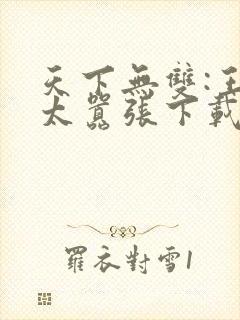 天下無雙:王
太囂張下載
羅衣對雪1